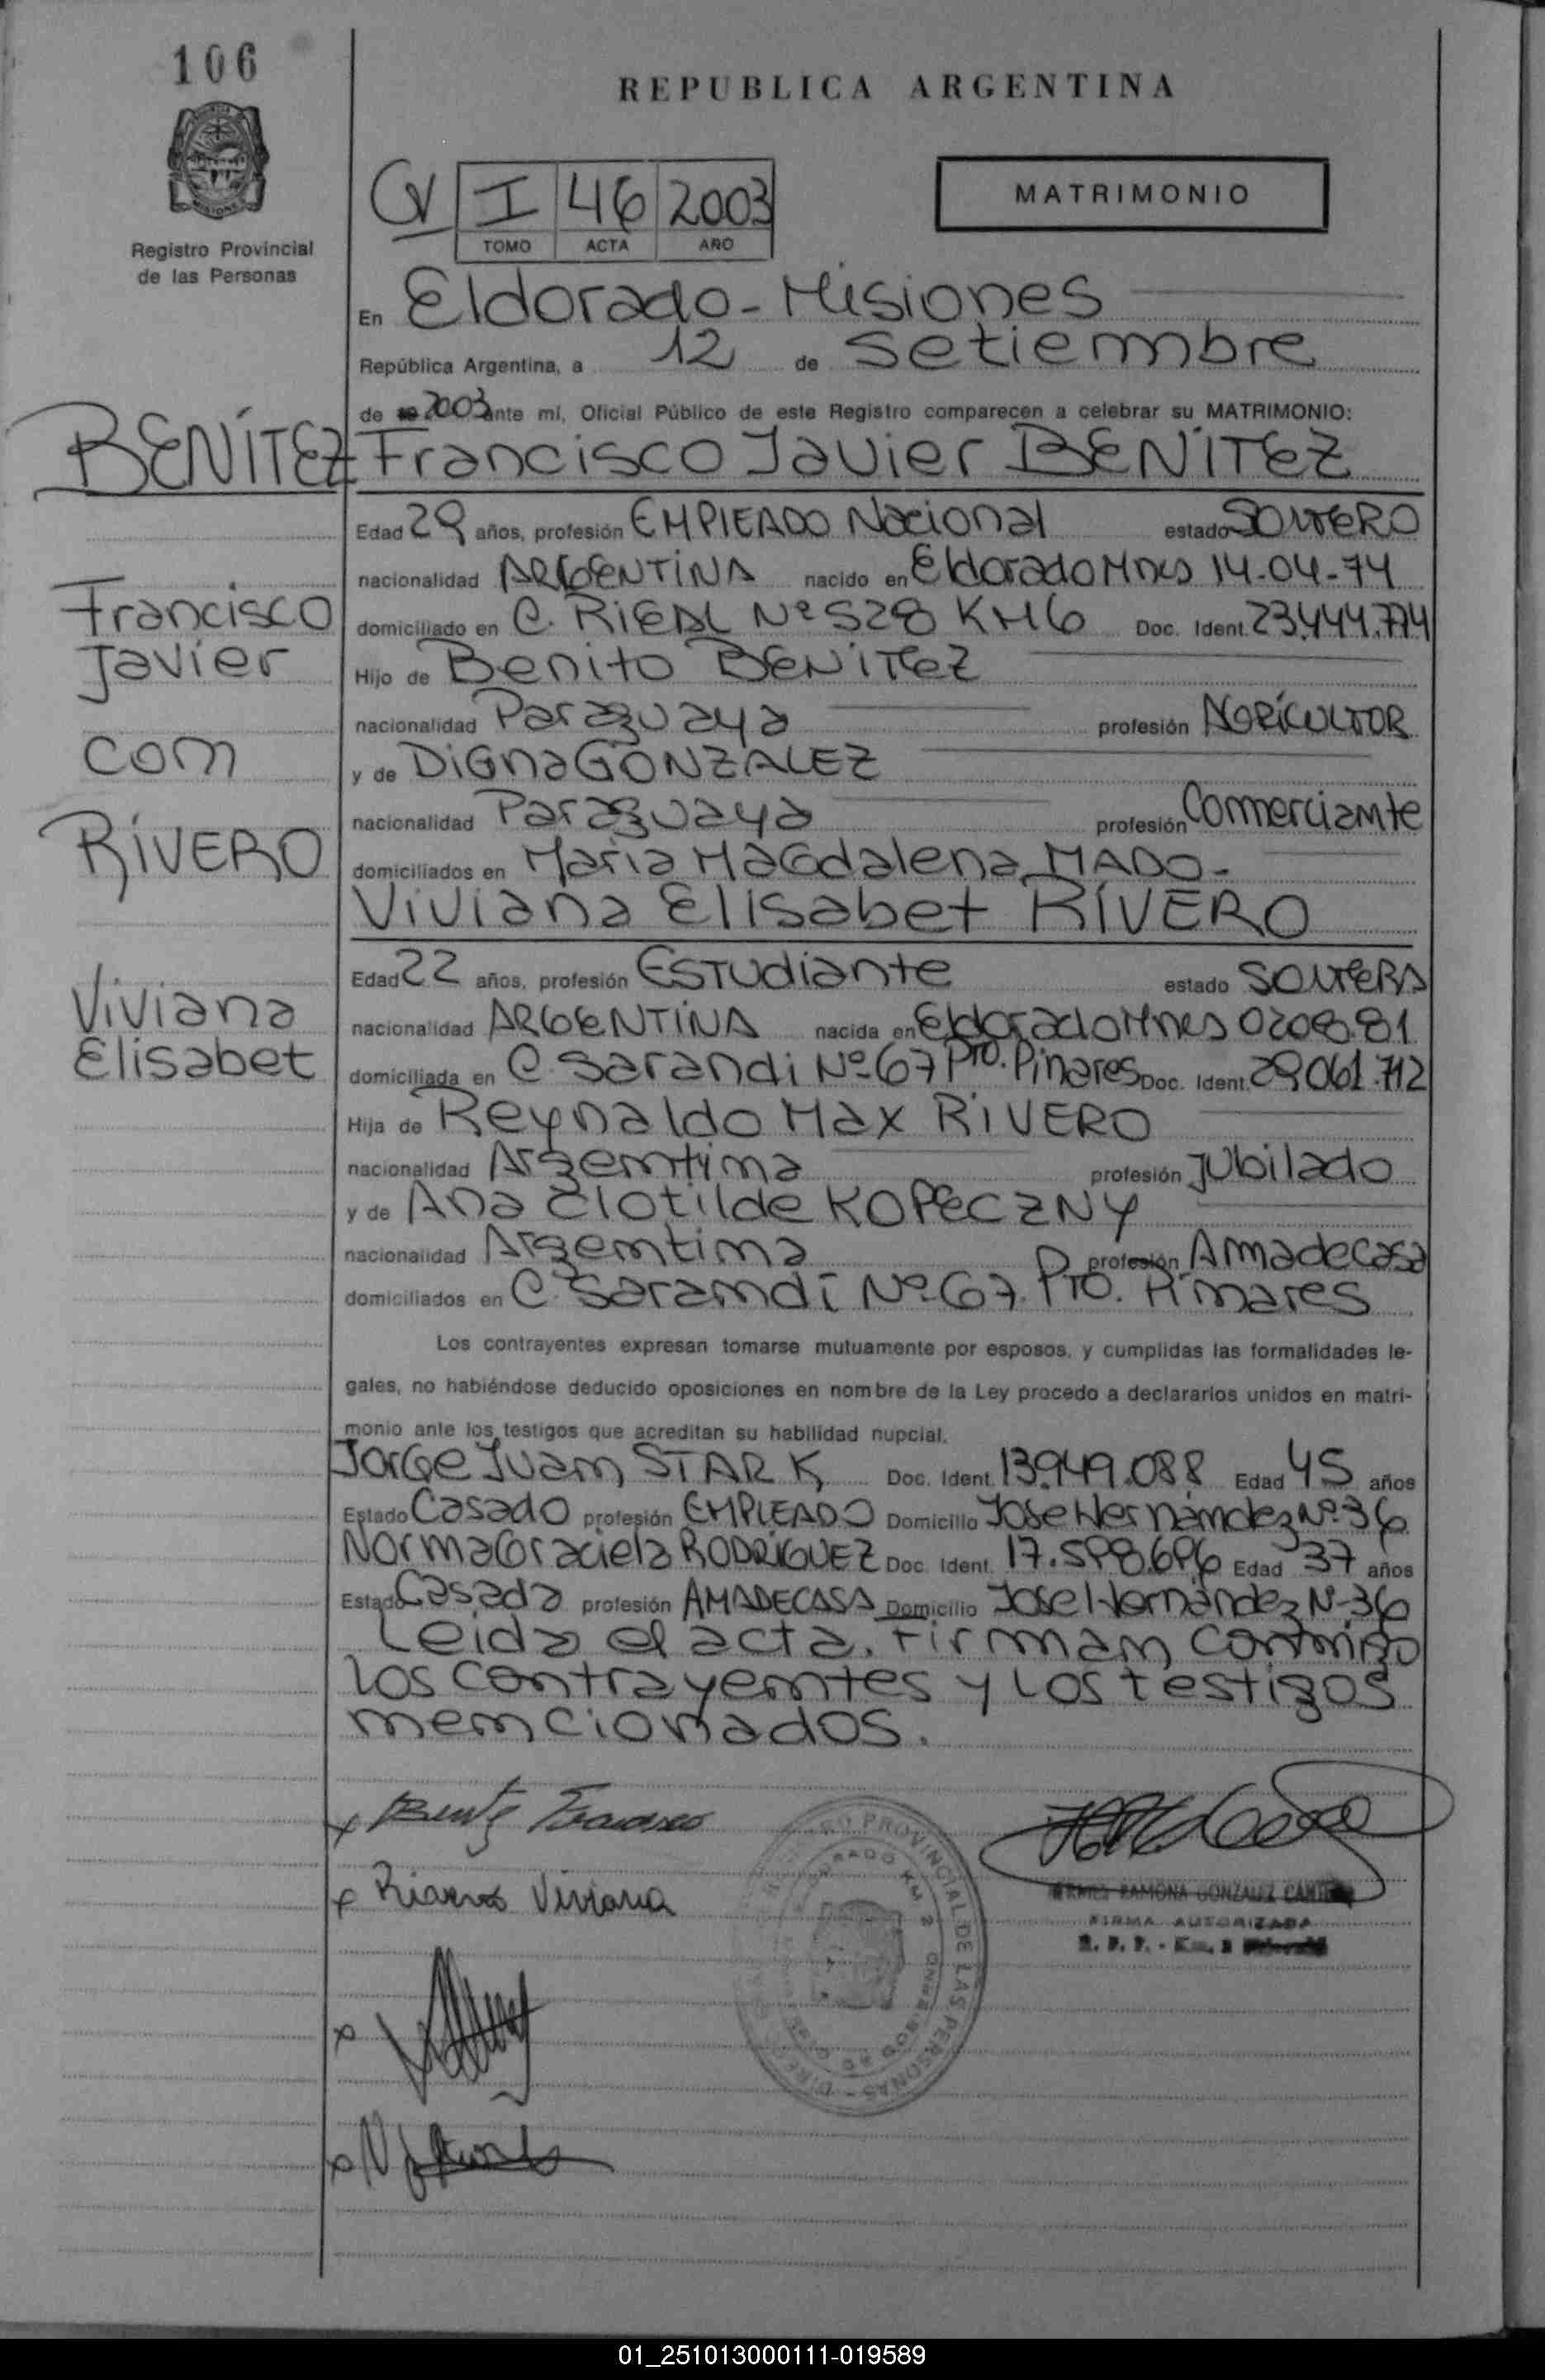 106
REPUBLICA ARGENTINA
Registro Provincial
de las Personas
MATRIMONIO
I 46 2003
TOMO ACTA AÑO
En Eldorado - Misiones
República Argentina, a 12 de Setiembre
de 2003 ante mí, Oficial Público de este Registro comparecen a celebrar su MATRIMONIO:
BENÍTEZ
Francisco
Javier
com
RÍVERO
Viviana
Elisabet
Francisco Javier BENITEZ
Edad 29 años, profesión EMPLEADO Nacional estado SOLTERO
nacionalidad ARGENTINA nacido en Eldorado Mnes 14-04-74
domiciliado en C. RIEDL Nº 528 KM6 Doc. Ident. 23.444.774
Hijo de Benito BENITEZ
nacionalidad Paraguaya profesión AGRÍCULTOR
y de DIGNA GONZALEZ
nacionalidad Paraguaya profesión Comerciamte
domiciliados en Maria Magdalena MADO -
Viviana Elisabet RÍVERO
Edad 22 años, profesión ESTUDiante estado SOLTERA
nacionalidad ARGENTINA nacida en Eldorado Mnes 02.08.81
domiciliada en C. Sarandi Nº 67 Pto. Pinares Doc. Ident. 29.061.712
Hija de Reynaldo Max RIVERO
nacionalidad Argemtima profesión Jubilado
y de Ana Clotilde KOPECZNY
nacionalidad Argemtima profesión Ama de casa
domiciliados en C. Saramdí Nº 67. Pto. Pimares
Los contrayentes expresan tomarse mutuamente por esposos, y cumplidas las formalidades le-
gales, no habiéndose deducido oposiciones en nombre de la Ley procedo a declararlos unidos en matri-
monio ante los testigos que acreditan su habilidad nupcial.
Jorge Juam STARK Doc. Ident. 13.949.088 Edad 45 años
Estado Casado profesión EMPLEADO Domicilio Jose Hernámdez Nº 36
Norma Graciela RODRÍGUEZ Doc. Ident. 17.598.696 Edad 37 años
Estado Casada profesión AMA DE CASA Domicilio Jose Hernández Nº 36
Leida el acta. Firmam conmigo
los contrayemtes y los testigos
memcionados.
x Benitez Francisco
x Rivero Viviana
x
x
DIRECCION REGISTRO PROVINCIAL DE LAS PERSONAS
RAMONA GONZALEZ
FIRMA AUTORIZADA
01_251013000111-019589